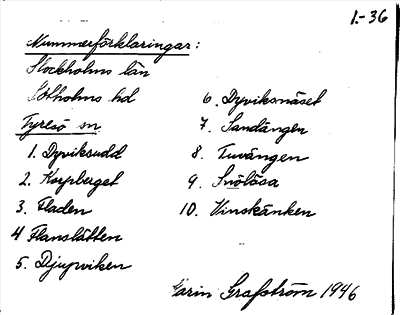 1.-36
Nummerförklaringar:
Stockholms län
Sotholms hd
Tyresö sn
1. Dyviksudd
2. Korpberget
3. Fladen
4 Flanslätten
5. Djupviken
6. Dyviksnäset
7. Sandängen
8. Tuvängen
9. Snölösa
10. Vinskänken
Karin Grafström 1946